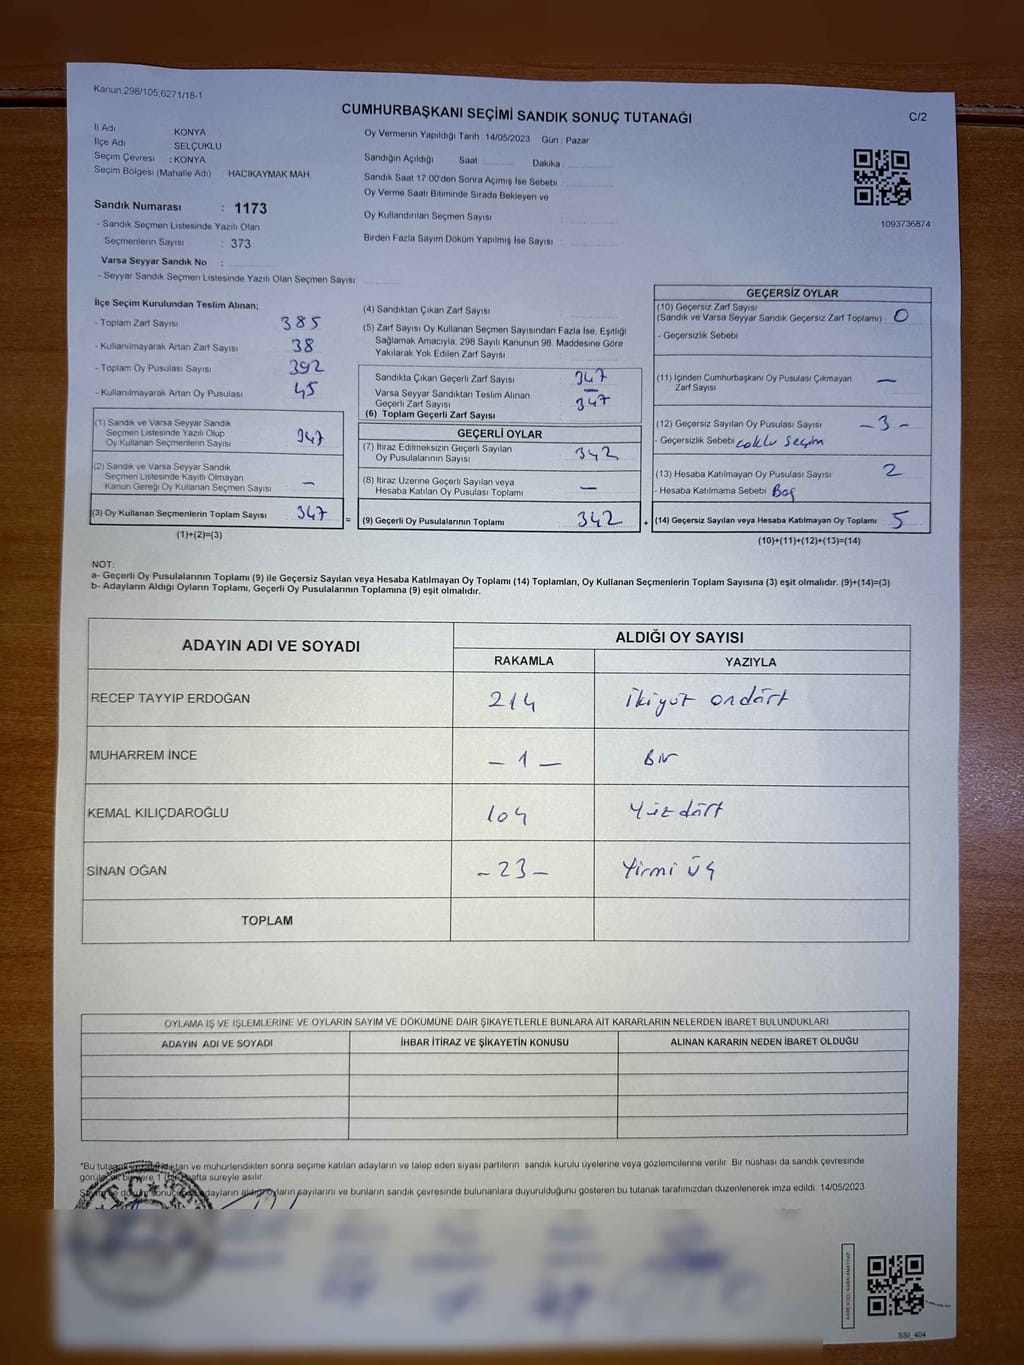 Kanun.298/105,6271/18-1
CUMHURBAŞKANI SEÇİMİ SANDIK SONUÇ TUTANAĞI
C/2
İl Adı : KONYA
İlçe Adı : SELÇUKLU
Seçim Çevresi : KONYA
Seçim Bölgesi (Mahalle Adı) HACIKAYMAK MAH.
Sandık Numarası : 1173
- Sandık Seçmen Listesinde Yazılı Olan
Seçmenlerin Sayısı : 373
Varsa Seyyar Sandık No :
- Seyyar Sandık Seçmen Listesinde Yazılı Olan Seçmen Sayısı
Oy Vermenin Yapıldığı Tarih 14/05/2023 Gün : Pazar
Sandığın Açıldığı Saat Dakika
Sandık Saat 17:00'den Sonra Açımış İse Sebebi
Oy Verme Saati Bitiminde Sırada Bekleyen ve
Oy Kullandırılan Seçmen Sayısı
Birden Fazla Sayım Döküm Yapılmış İse Sayısı
1093736874
İlçe Seçim Kurulundan Teslim Alınan;
- Toplam Zarf Sayısı 385
- Kullanılmayarak Artan Zarf Sayısı 38
- Toplam Oy Pusulası Sayısı 392
- Kullanılmayarak Artan Oy Pusulası 45
(1) Sandık ve Varsa Seyyar Sandık
Seçmen Listesinde Yazılı Olup
Oy Kullanan Seçmenlerin Sayısı 347
(2) Sandık ve Varsa Seyyar Sandık
Seçmen Listesinde Kayıtlı Olmayan
Kanun Gereği Oy Kullanan Seçmen Sayısı —
(3) Oy Kullanan Seçmenlerin Toplam Sayısı 347
(1)+(2)=(3)
(4) Sandıktan Çıkan Zarf Sayısı
(5) Zarf Sayısı Oy Kullanan Seçmen Sayısından Fazla İse, Eşitliği
Sağlamak Amacıyla, 298 Sayılı Kanunun 98. Maddesine Göre
Yakılarak Yok Edilen Zarf Sayısı
Sandıkta Çıkan Geçerli Zarf Sayısı 347
Varsa Seyyar Sandıktan Teslim Alınan
Geçerli Zarf Sayısı —
(6) Toplam Geçerli Zarf Sayısı 347
GEÇERLİ OYLAR
(7) İtiraz Edilmeksizin Geçerli Sayılan
Oy Pusulalarının Sayısı 342
(8) İtiraz Üzerine Geçerli Sayılan veya
Hesaba Katılan Oy Pusulası Toplamı —
= (9) Geçerli Oy Pusulalarının Toplamı 342 +
GEÇERSİZ OYLAR
(10) Geçersiz Zarf Sayısı
(Sandık ve Varsa Seyyar Sandık Geçersiz Zarf Toplamı) 0
- Geçersizlik Sebebi
(11) İçinden Cumhurbaşkanı Oy Pusulası Çıkmayan
Zarf Sayısı —
(12) Geçersiz Sayılan Oy Pusulası Sayısı - 3 -
- Geçersizlik Sebebi çoklu seçim
(13) Hesaba Katılmayan Oy Pusulası Sayısı 2
- Hesaba Katılmama Sebebi Boş
(14) Geçersiz Sayılan veya Hesaba Katılmayan Oy Toplamı 5
(10)+(11)+(12)+(13)=(14)
NOT:
a- Geçerli Oy Pusulalarının Toplamı (9) ile Geçersiz Sayılan veya Hesaba Katılmayan Oy Toplamı (14) Toplamları, Oy Kullanan Seçmenlerin Toplam Sayısına (3) eşit olmalıdır. (9)+(14)=(3)
b- Adayların Aldığı Oyların Toplamı, Geçerli Oy Pusulalarının Toplamına (9) eşit olmalıdır.
ADAYIN ADI VE SOYADI ALDIĞI OY SAYISI
RAKAMLA YAZIYLA
RECEP TAYYİP ERDOĞAN 214 ikiyüz ondört
MUHARREM İNCE - 1 - Bir
KEMAL KILIÇDAROĞLU 104 Yüz dört
SİNAN OĞAN - 23 - Yirmi üç
TOPLAM
OYLAMA İŞ VE İŞLEMLERİNE VE OYLARIN SAYIM VE DÖKÜMÜNE DAİR ŞİKAYETLERLE BUNLARA AİT KARARLARIN NELERDEN İBARET BULUNDUKLARI
ADAYIN ADI VE SOYADI İHBAR İTİRAZ VE ŞİKAYETİN KONUSU ALINAN KARARIN NEDEN İBARET OLDUĞU
*Bu ve mühürlendikten sonra seçime katılan adayların ve talep eden siyasi partilerin sandık kurulu üyelerine veya gözlemcilerine verilir. Bir nüshası da sandık çevresinde
hafta süreyle asılır.
adayların aldığı oyların sayılarını ve bunların sandık çevresinde bulunanlara duyurulduğunu gösteren bu tutanak tarafımızdan düzenlenerek imza edildi. 14/05/2023
SSI_404